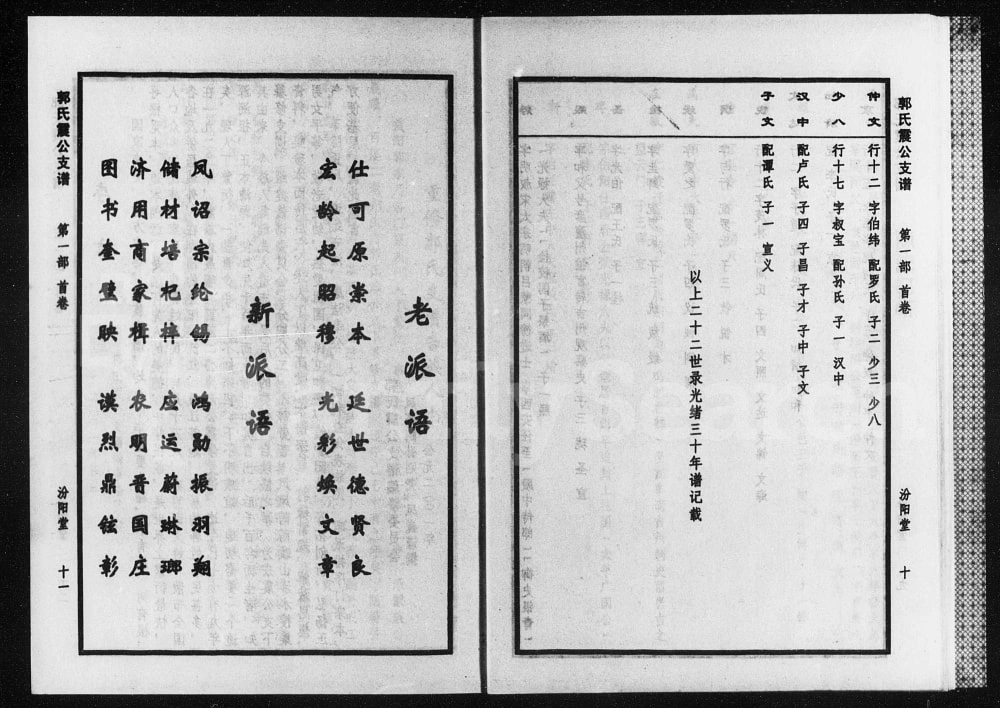 郭氏震公支谱 第一部 首卷 汾阳堂 十
仲文 行十二 字伯纬 配罗氏 子二 少三 少八
少八 行十七 字叔宝 配孙氏 子一 汉中
汉中 配卢氏 子四 子昌 子才 子中 子文
子文 配谭氏 子一 宣义
以上二十二世录光绪三十年谱记载
老派语
仕可原崇本 廷世德贤良
宏龄起昭穆 光彩焕文章
新派语
凤诏宗纶锡 鸿勋振羽翔
储材培杞梓 应运蔚琳瑯
济用商家楫 农明晋国庄
图书奎壁映 谟烈鼎铉彰
郭氏震公支谱 第一部 首卷 汾阳堂 十一